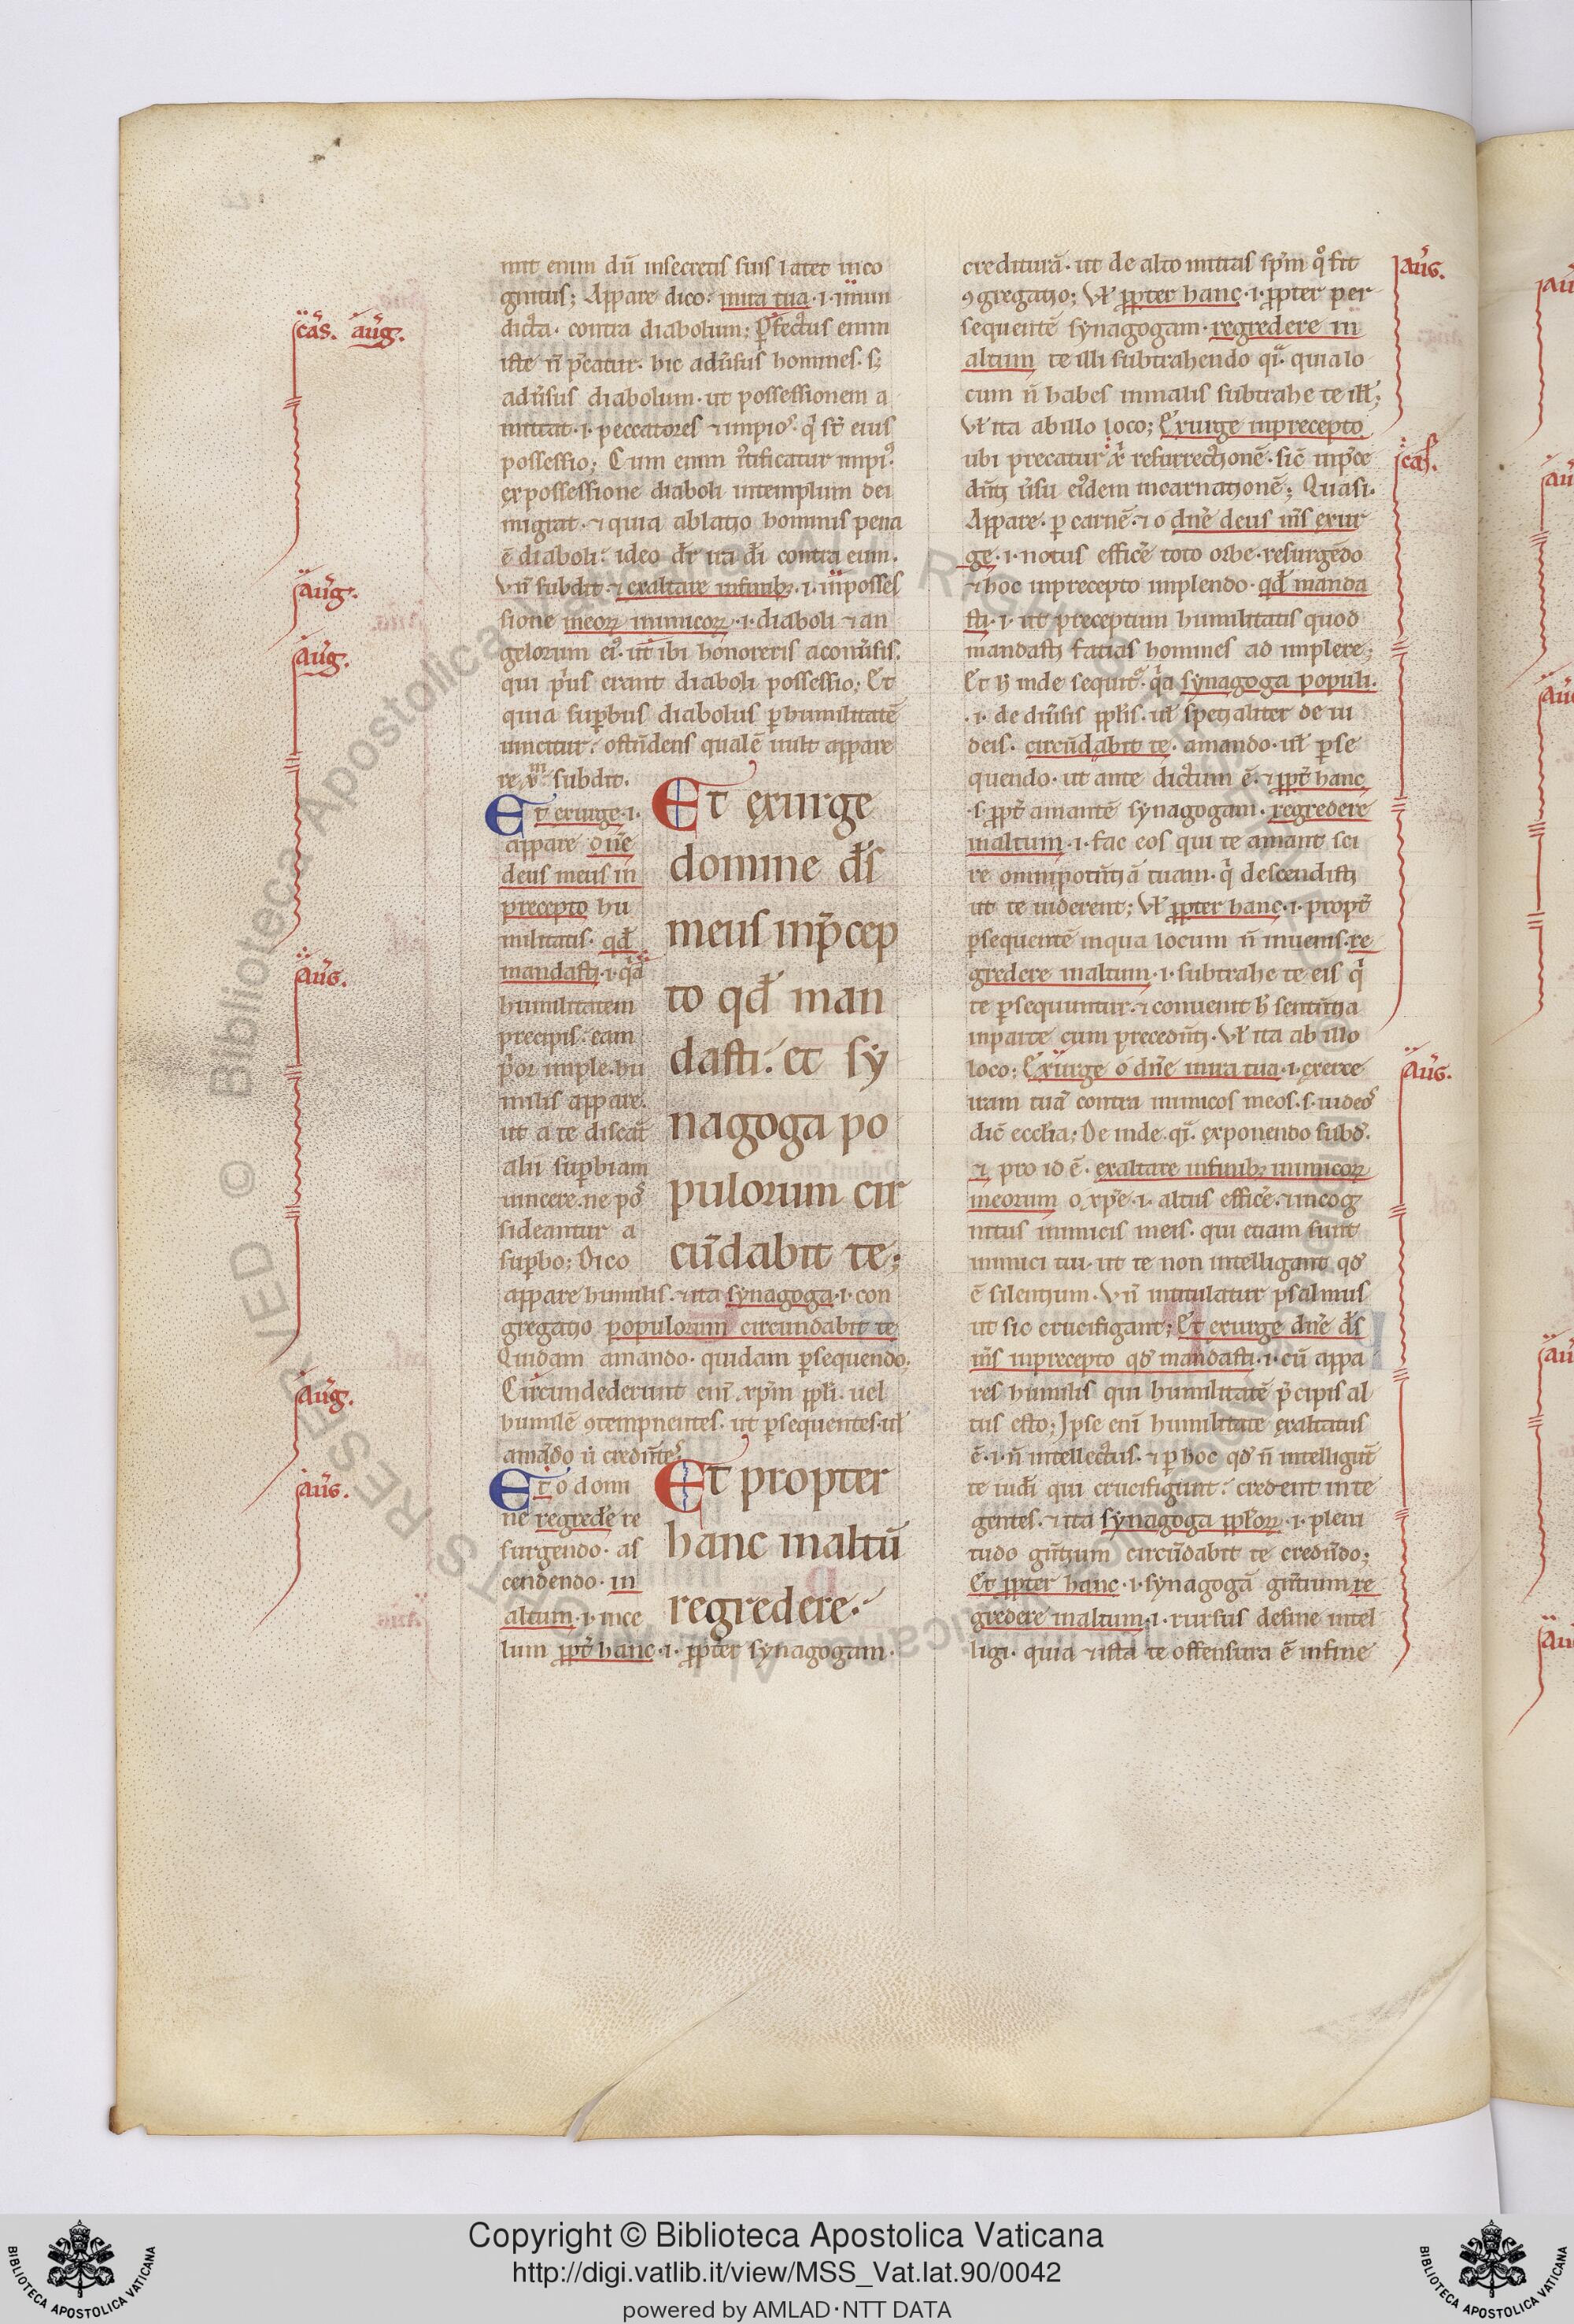 nit enim dū insecretis suis latet inco
gnitus; Appare dico. inira tua .i. inuin
dicta. contra diabolum; P̄fectus enim
iste n̄ p̄catur. hic adūsus homines. sꝫ
adūsus diabolum. ut possessionem a
mittat .i. peccatores ⁊ impios. q̄ st̄ eius
possessio; Cum enim iūstificatur impiꝰ.
expossessione diaboli intemplum dei
migrat. ⁊ quia ablatio hominis pena
ē diaboli. ideo dr̄ ira dī contra eum.
Vn̄ subdit. ⁊ exaltare infinibꝫ .i. inposses
sione meorꝝ inimicorꝝ .i. diaboli ⁊ an
gelorum eiꝰ. ut ibi honoreris aconūsis.
qui p̄us erant diaboli possessio; Et
quia sup̄bus diabolus ꝑhumilitatē
uincitur. ostn̄dens qualē uult appare
re xp̄m subdit.
Et exurge .i.
appare dn̄e
deus meus in
precepto hu
militatis. qd̄
mandasti .i. q̄a
humilitatem
precipis. eam
p̄or imple. hu
milis appare.
ut a te discāt
alii sup̄biam
uincere. ne pos
sideantur a
sup̄bo; Dico
Et exurge
domine ds̄
meus inp̄cep
to qd̄ man
dasti. et sy
nagoga po
pulorum cir
cūdabit te;
appare humilis. ⁊ ita synagoga .i. con
gregatio populorum circundabit te
Quidam amando. quidam ꝑsequendo.
Circundederunt eni xp̄m ppl̄i. uel
humilē ꝯtempnentes. ut ꝑsequentes. ul̄
amādo ū credn̄tes.
Et o domi
ne regredere re
surgendo. as
cendendo. in
altum .i. ince
Et propter
hanc inaltū
regredere.
lum ꝓpt̄ hanc .i. ꝓpter synagogam.
cas. aug.
aug.
aug.
aug.
aug.
aug.
creditura. ut de alto mittas sp̄m q̊ fit
ꝯgregatio; Vl̄ ꝓpter hanc .i. ꝓpter per
sequentē synagogam. regredere in
altum te illi subtrahendo qī. quia lo
cum n̄ habes inmalis subtrahe te ill̄;
Vl̄ ita abillo loco; Exurge inprecepto
ubi precatur xp̄i resurrectionē. sic inp̄ce
dn̄ti ūsu eiꝰdem incarnationē; Quasi.
Appare. ꝑ carnē. ⁊ o dn̄e deus ms̄ exur
ge .i. notus efficē toto orbe. resurgēdo
⁊ hoc inprecepto implendo. qd̄ manda
sti .i. ut preceptum humilitatis quod
mandasti facias homines ad implere;
Et ħ inde sequit̄. q̄a synagoga populi.
.i. de diūsis ppl̄is. ul̄ specialiter de iu
deis. circūdabit te. amando. ul̄ ꝑse
quendo. ut ante dictum ē. ⁊ ꝓpt̄ hanc
.s. ꝓpt̄ amantē synagogam. regredere
inaltum .i. fac eos qui te amant sci
re omnipotn̄tiā tuam. q̄ descendisti
ut te uiderent; Vl̄ ꝓpter hanc .i. propt̄
ꝑsequentē inqua locum n̄ inuenis. re
gredere inaltum .i. subtrahe te eis q̄
te ꝑsequuntur. ⁊ conuenit ħ sentn̄tia
inparte cum precedn̄ti. Vl̄ ita ab illo
loco; Exurge o dn̄e inira tua .i. exerce
iram tuā contra inimicos meos .s. iudeos
dic̄ ecclīa; De inde qī. exponendo subd̄.
⁊ pro id ē. exaltare infinibꝫ inimicorꝝ
meorum o xp̄e .i. altus efficē. ⁊ incog
nitus inimicis meis. qui etiam sunt
inimici tui. ut te non intelligant qd̄
ē silentium. Vn̄ intitulatur psalmus
ut sic crucifigant; Et exurge dn̄e ds̄
ms̄ inprecepto qd̄ mandasti .i. cū appa
res humilis qui humilitatē p̄cipis al
tus esto; Ipse eni humilitate exaltatus
ē .i. n̄ intellectus. ⁊ ꝑ hoc qd̄ n̄ intelligūt
te iudī qui crucifigunt. credent inte
gentes. ⁊ ita synagoga ppl̄orꝝ .i. pleni
tudo gn̄tium circūdabit te credn̄do;
Et ꝓpter hanc .i. synagogā gn̄tium re
gredere inaltum .i. rursus desine intel
ligi. quia ⁊ ista te offensura ē infine
aug.
cas.
aug.
Copyright © Biblioteca Apostolica Vaticana
http://digi.vatlib.it/view/MSS_Vat.lat.90/0042
powered by AMLAD·NTT DATA
BIBLIOTECA APOSTOLICA VATICANA
BIBLIOTECA APOSTOLICA VATICANA